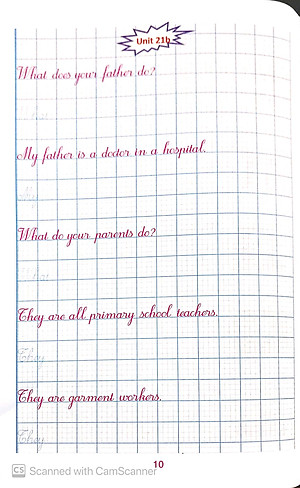 Unit 21b
What does your father do?
What
My father is a doctor in a hospital.
My
What do your parents do?
What
They are all primary school teachers.
They
They are garment workers.
They
10
CS Scanned with CamScanner